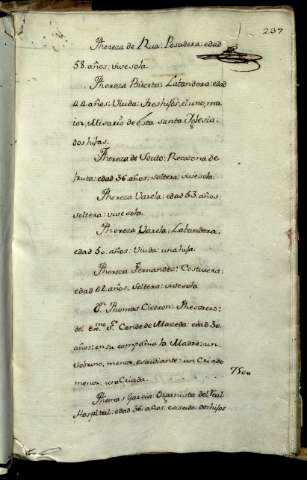 237
Thereza de Rua: Posadera: edad
58. años: vive sola.
Thereza Biscotas Labandera: edad
44 años: Viuda: tres hijos, el uno, ma
ior, Misario de esta santa Iglesia
dos hijas.
Thereza de Souto: Recatona de
fruta: edad 36 años: soltera: vive sola.
Thereza Varela: edad 53. años
soltera: vive sola.
Thereza Varela: Labandera,
edad 50. años: Viuda: una hija.
Thereza Fernandez: Costurera:
edad 42. años. Soltera: vive sola
Dn. Thomas Ciceron: Thesorero
del Exmo. Sr. Conde de Maceda: edad 30.
años: en su compañia la Madre: un
sobrino, menor, estudiante: un Criado
menor: una Criada.
7500
Thomas Garcia: Organista del Real
Hospital: edad 36. años: casado: dos hijos